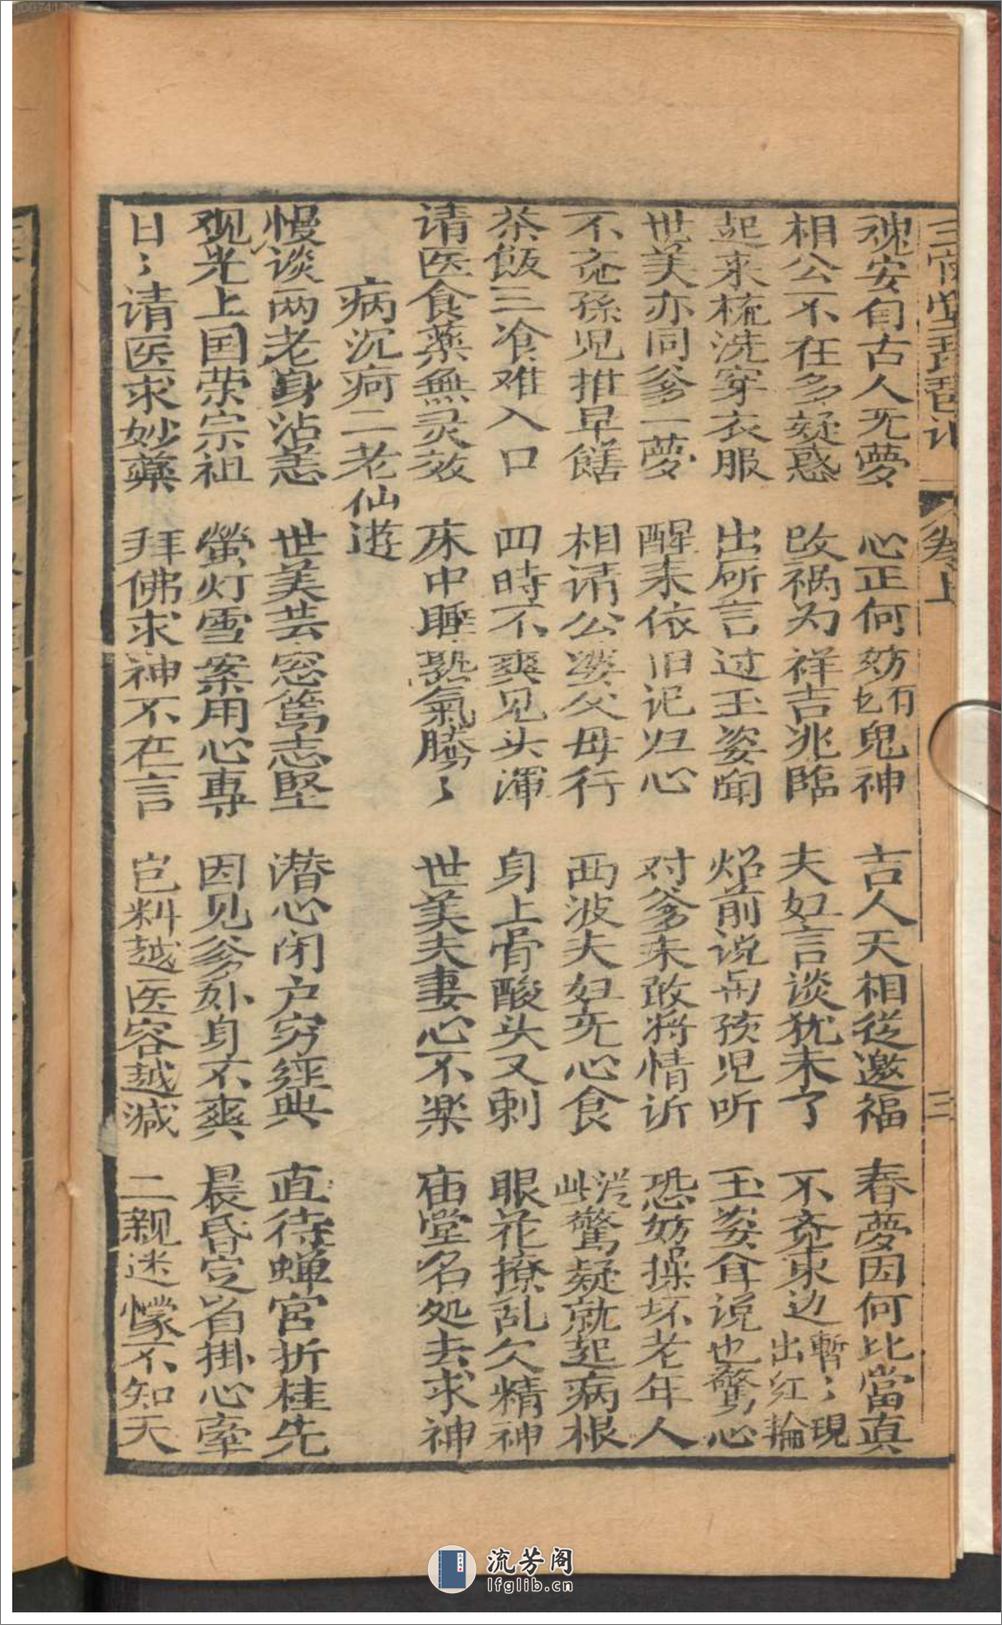 三官堂琵琶記 卷上 三
魂安自古人无夢 心正何妨乜有鬼神 吉人天相從邀福 春夢因何比當真
相公不在多疑惑 改祸为祥吉兆臨 夫妇言谈犹未了 不觉東边暫〻現出红輪
起来梳洗穿衣服 出所言过玉姿闻 炤前说与孩児听 玉姿耸说也驚心
世美亦同爹一夢 醒来依旧记归心 对爹未敢将情诉 恐妨操坏老年人
不觉孫児推早饍 相请公婆父母行 两波夫妇无心食 從此驚疑就起病根
茶飯三飡难入口 四時不爽见头渾 身上骨酸头又刺 眼花撩乱欠精神
请医食薬無灵效 床中睡熟氣騰〻 世美夫妻心不楽 庙堂名处去求神
病沉疴二老仙逰
慢谈两老身沾恙 世美芸窓篤志堅 潜心闭户穷经典 直待蝉宮折桂先
观光上国荣宗祖 螢灯雪案用心專 因见爹外身不爽 晨昏定省掛心牽
日〻请医求妙藥 拜佛求神不在言 岂料越医容越减 二親迷懞不知天
流芳阁
lfglib.cn